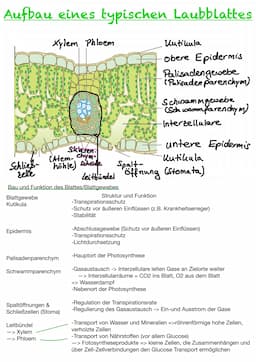 Aufbau eines typischen Laubblattes
Xylem Phloem
Kutikula
obere Epidermis
Palisadengewebe
(Palisadenparenchym)
Schwammgewebe
(Schwammparenchym)
Interzellulare
untere Epidermis
Kutikula
(Stomata)
Schließ-
zelle
(Atem-
höhle)
Skleren-
chym-
scheide
Leitbündel
Spalt-
öffnung
Bau und Funktion des Blattes/Blattgewebes
Blattgewebe Struktur und Funktion
Kutikula -Transpirationsschutz
-Schutz vor äußeren Einflüssen (z.B. Krankheitserreger)
-Stabilität
Epidermis -Abschlussgewebe (Schutz vor äußeren Einflüssen)
-Transpirationsschutz
-Lichtdurchsetzung
Palisadenparenchym -Hauptort der Photosynthese
Schwammparenchym -Gasaustausch -> Interzellulare leiten Gase an Zielorte weiter
—> Interzellularräume = CO2 ins Blatt, O2 aus dem Blatt
—> Wasserdampf
-Nebenort der Photosynthese
Spaltöffnungen & -Regulation der Transpirationsrate
Schließzellen (Stoma) -Regulierung des Gasaustausch —> Ein-und Ausstrom der Gase
Leitbündel -Transport von Wasser und Mineralien =>röhrenförmige hohle Zellen,
—> Xylem verholzte Zellen
—> Phloem -Transport von Nährstoffen (vor allem Glucose)
—> Fotosyntheseprodukte => kleine Zellen, die Zusammenhängen und
über Zell-Zellverbindungen den Glucose Transport ermöglichen